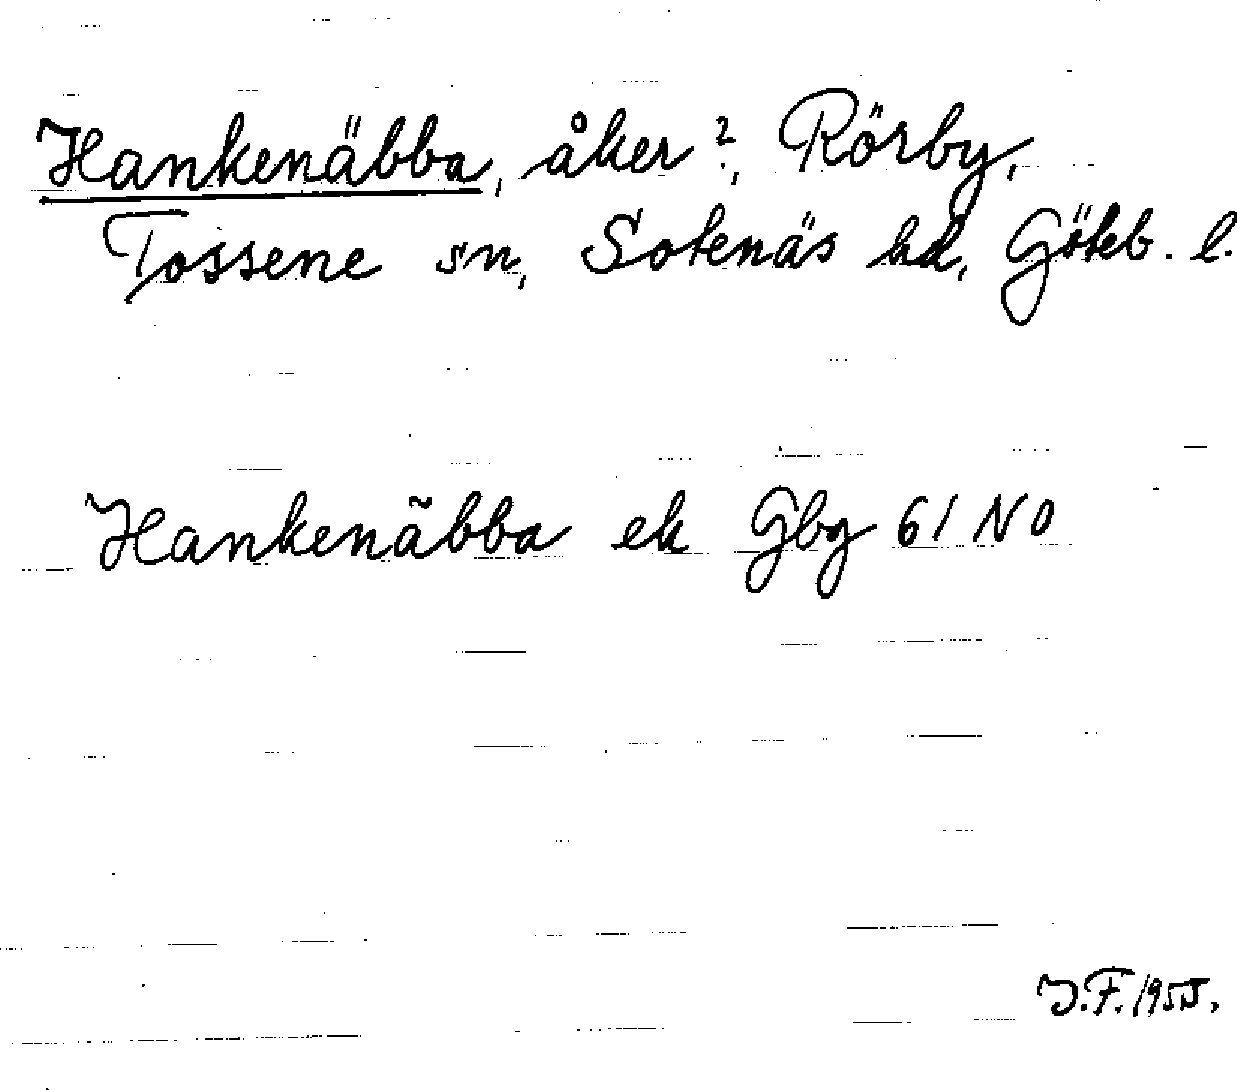 Hankenäbba, åker?, Rörby,
Tossene sn, Sotenäs hd, Göteb. l.
Hankenäbba ek Gbg 61 NO
J.F. 1955.